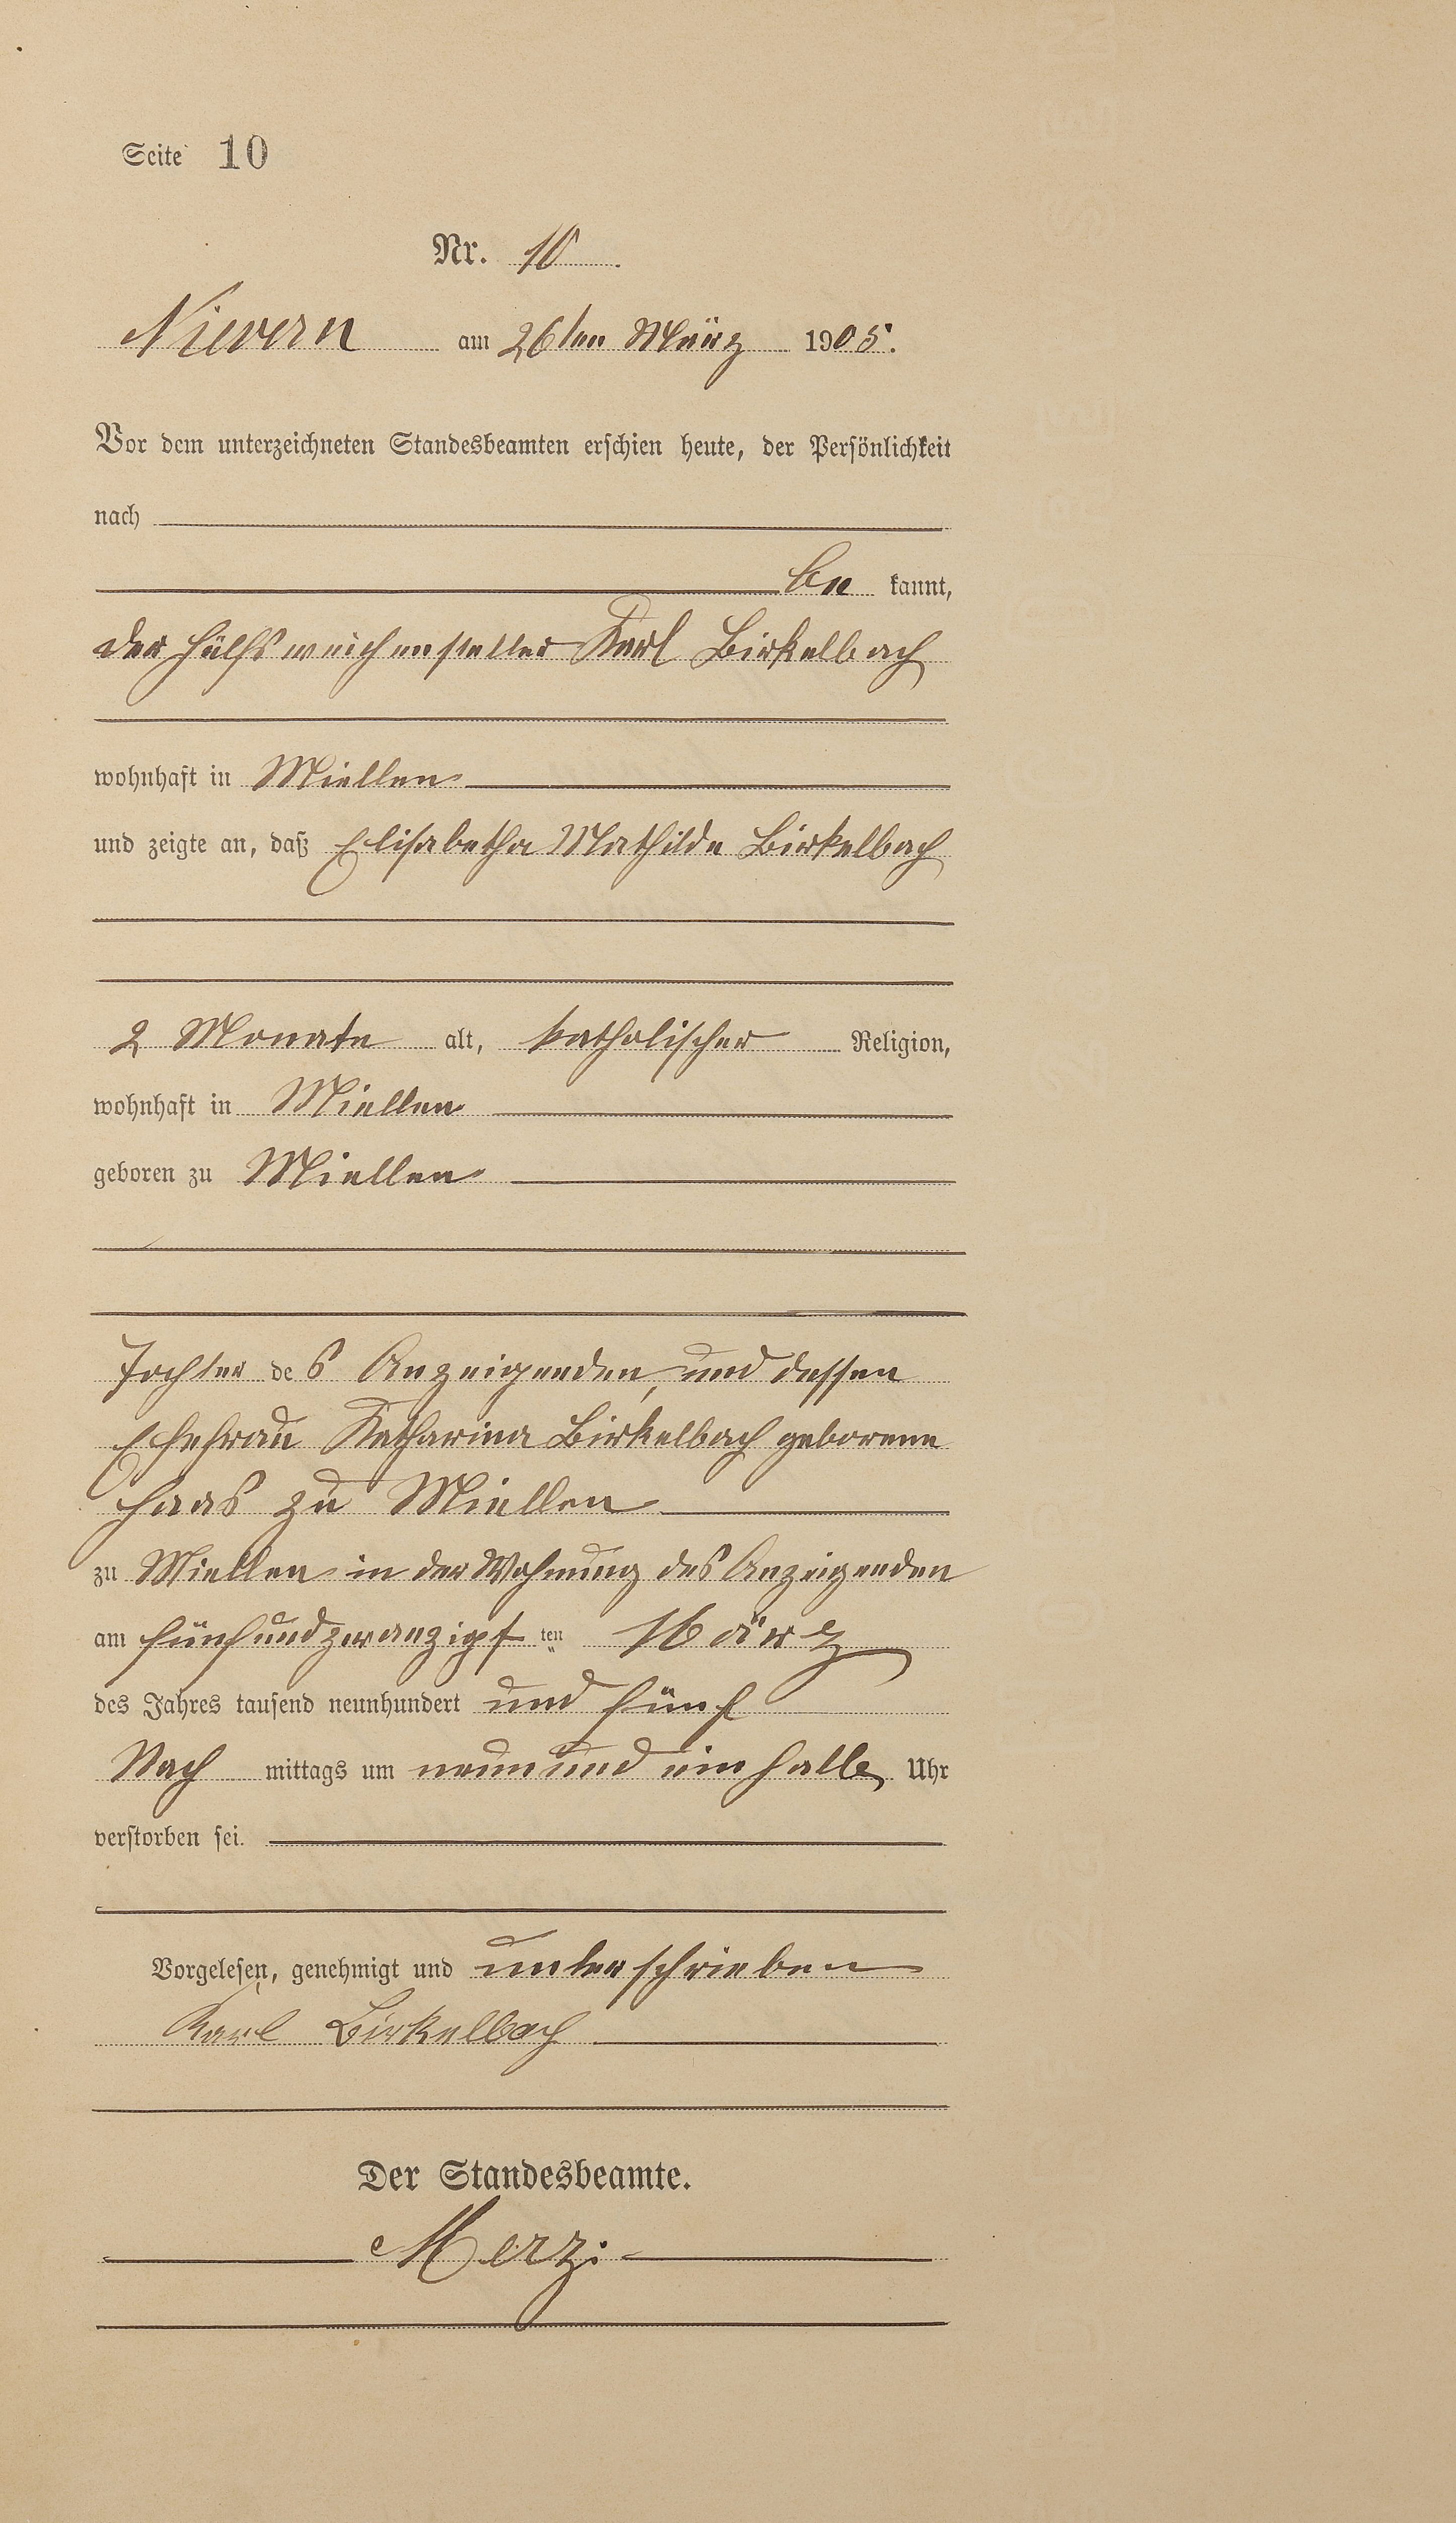 Seite 10
Nr. 10
Nievern am 26ten März 1905.
Vor dem unterzeichneten Standesbeamten erschien heute, der Persönlichkeit
nach
be kannt,
der Hülfsweichensteller Karl Birkelbach
wohnhaft in Miellen
und zeigte an, daß Elisabetha Mathilde Birkelbach
2 Monate alt, katholischer Religion,
wohnhaft in Miellen
geboren zu Miellen
Tochter des Anzeigenden, und dessen
Ehefrau Katharina Birkelbach geborene
Haas zu Miellen
zu Miellen in der Wohnung des Anzeigenden
am fünfundzwanzigsten März
des Jahres tausend neunhundert und fünf
Nach mittags um neun und ein halb Uhr
verstorben sei.
Vorgelesen, genehmigt und unterschrieben
Karl Birkelbach
Der Standesbeamte.
Merz.